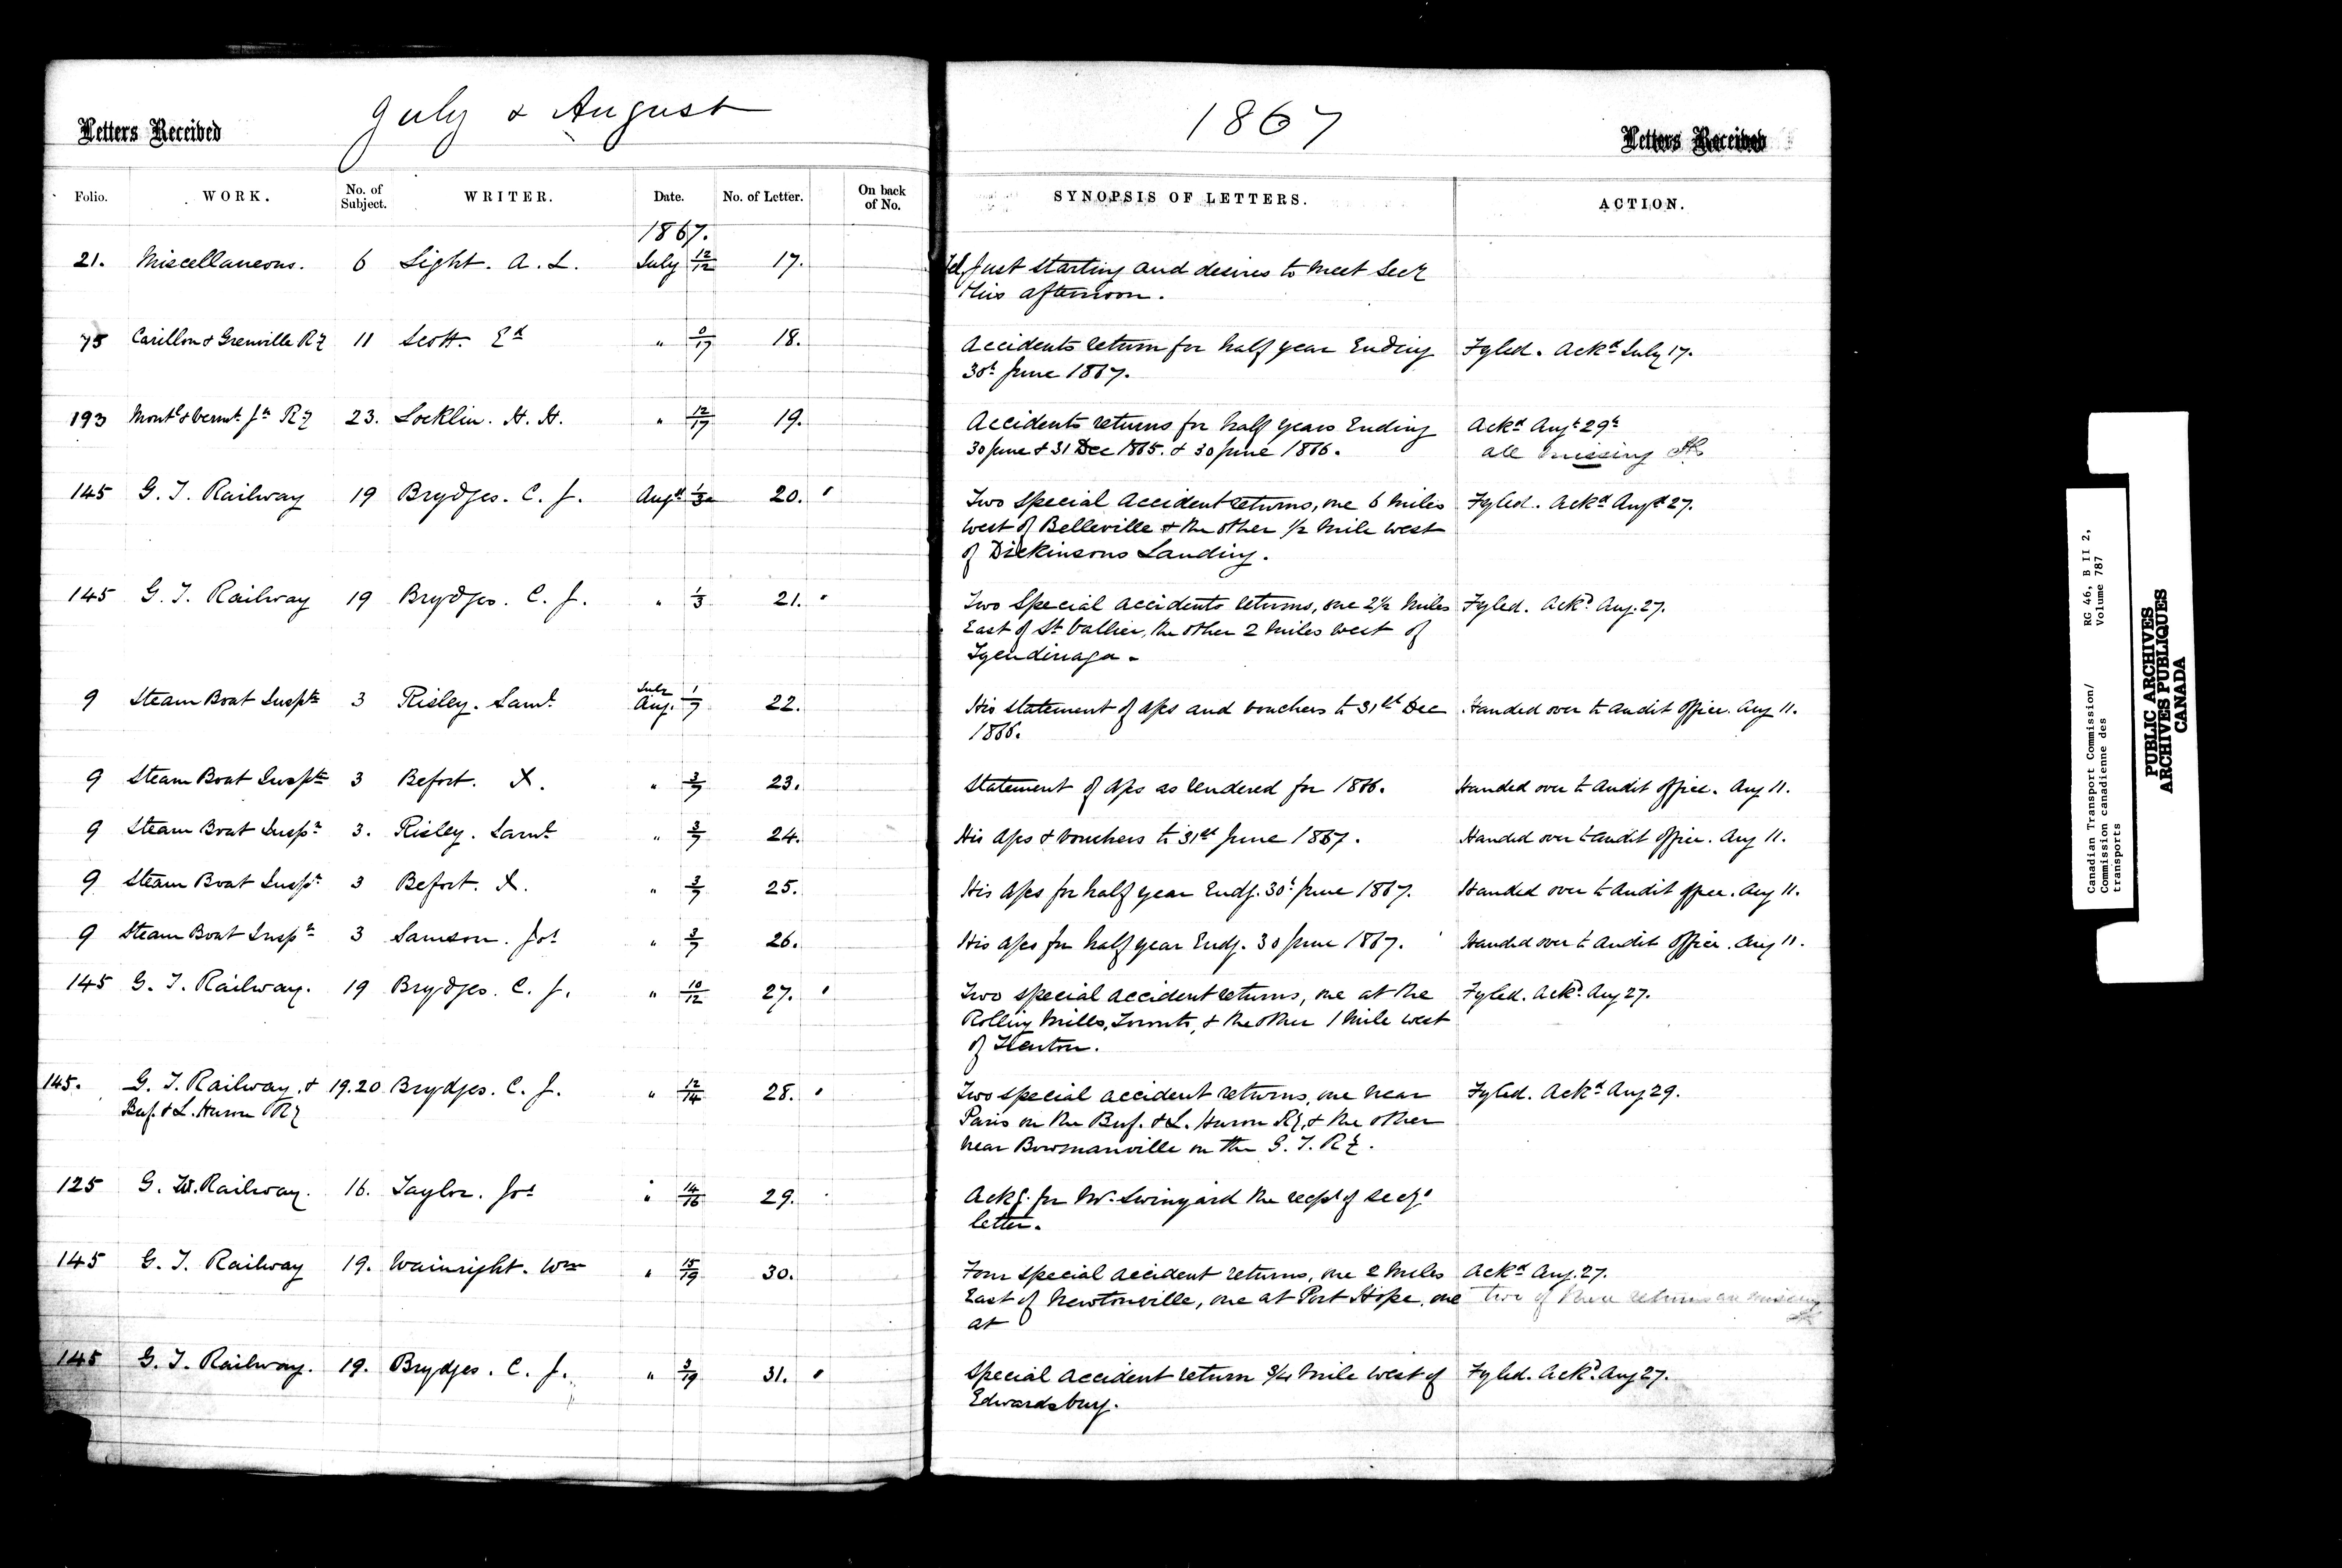 Letters Received
July & August
1867
Letters Received
Folio. WORK. No. of Subject. WRITER. Date. No. of Letter. On back of No. SYNOPSIS OF LETTERS. ACTION.
1867.
21. Miscellaneous. 6 Light. A. L. July 12/12 17. Tel. Just starting and desires to meet Secy
this afternoon.
75 Carillon & Grenville Ry 11 Scott. Ed " 0/17 18. Accidents return for half year Ending Fyled. Ackd July 17.
30th June 1867.
193 Montl & Vermt. Jn Ry 23. Locklin. H. H. " 12/17 19. Accidents returns for half years Ending Ackd Augt 29th
30 June & 31 Dec 1865. & 30 June 1866. all missing
145 G. T. Railway 19 Brydges. C. J. Augt 1/3 20. Two special accident returns, one 6 miles Fyled. Ackd Augt 27.
West of Belleville & the other 1/2 mile west
of Dickinsons Landing.
145 G. T. Railway 19 Brydges. C. J. " 1/3 21. Two Special accidents returns, one 2 1/2 miles Fyled. Ackd Aug. 27.
East of St Vallier, the other 2 miles west of
Tyendinaga -
9 Steam Boat Inspn 3 Risley. Saml July Aug. 1/7 22. His statement of a/cs and vouchers to 31st Dec Handed over to audit office. Aug 11.
1866.
9 Steam Boat Inspn 3 Befort. X. " 3/7 23. Statement of a/cs as rendered for 1866. Handed over to audit office. Aug 11.
9 Steam Boat Inspn 3. Risley. Saml " 3/7 24. His a/cs & vouchers to 31st June 1867. Handed over to audit office. Aug 11.
9 Steam Boat Inspn 3 Befort. X. " 3/7 25. His a/cs for half year Endg. 30th June 1867. Handed over to audit office. Aug 11.
9 Steam Boat Inspn 3 Samson. Jos " 3/7 26. His a/cs for half year Endg. 30 June 1867. Handed over to audit office. Aug 11.
145 G. T. Railway. 19 Brydges. C. J. " 10/12 27. Two special accident returns, one at the Fyled. Ackd. Aug 27.
Rolling Mills, Toronto, & the other 1 mile west
of Trenton.
145. G. T. Railway. & 19.20 Brydges. C. J. " 12/14 28. Two special accident returns, one near Fyled. Ackd Aug 29.
Buf. & L. Huron Ry Paris on the Buf. & L. Huron Ry, & the other
near Bowmanville on the G. T. Ry.
125 G. W. Railway. 16. Taylor. Jos " 14/16 29. Ackg. for Mr. Swinyard the recpt of Secys
letter.
145 G. T. Railway 19. Wainright. Wm " 15/19 30. Four special accident returns, one 2 miles Ackd Aug. 27.
East of Newtonville, one at Port Hope, one two of these returns are missing
at
145 G. T. Railway. 19. Brydges. C. J. " 3/19 31. Special accident return 3/4 mile west of Fyled. Ackd. Aug 27.
Edwardsburg.
Canadian Transport Commission/ RG 46, B II 2,
Commission canadienne des Volume 787
transports
PUBLIC ARCHIVES
ARCHIVES PUBLIQUES
CANADA